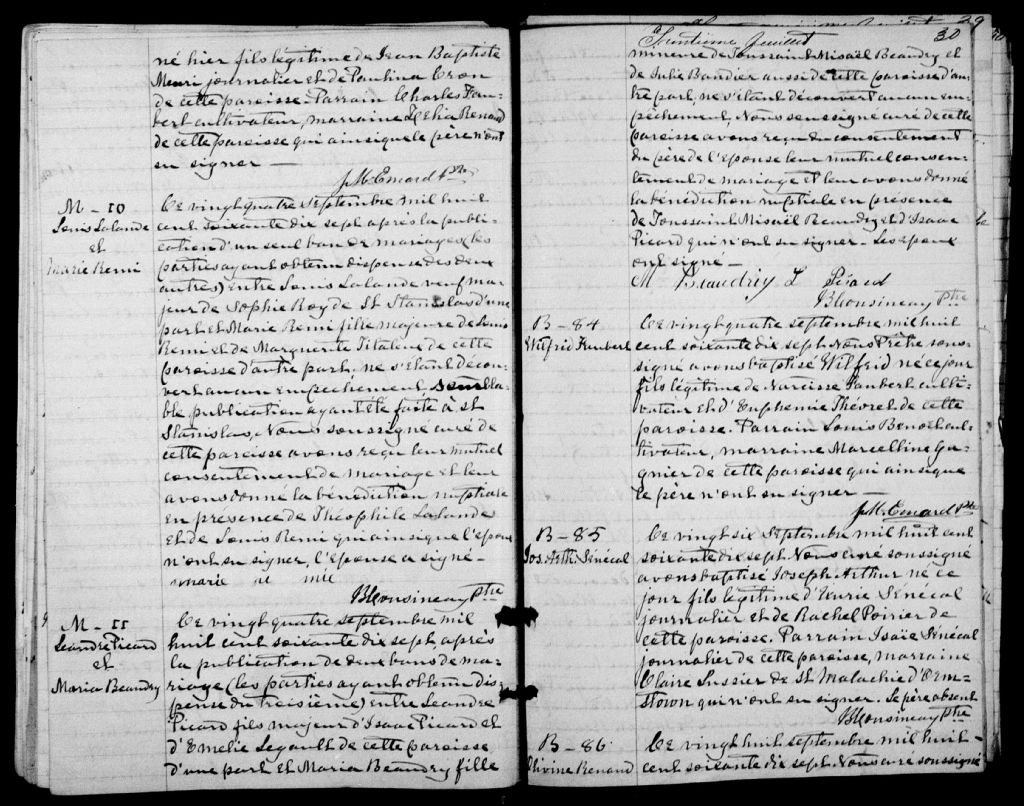 né hier fils légitime de Jean Baptiste
Henri journalier et de Paulina
de cette paroisse. Parrain Charles Fau-
bert cultivateur, marraine Renaud
de cette paroisse qui ainsi que le père n'ont
su signer —
J.M. Emard Ptre
M - 10
Louis Lalande
et
Marie Remi
Ce vingt quatre septembre mil huit
cent soixante dix sept après la publi-
cation d'un seul ban de mariages (les
parties ayant obtenu dispense des deux
autres) entre Louis Lalande veuf ma-
jeur de Sophie Roy de St Stanislas d'une
part et Marie Remi fille majeure de Louis
Remi et de Marguerite de cette
paroisse d'autre part, ne s'étant décou-
vert aucun empêchement Sembla-
ble publication ayant été faite à St
Stanislas, Nous soussigné curé de
cette paroisse avons reçu leur mutuel
consentement de mariage et leur
avons donné la bénédiction nuptiale
en présence de Théophile Lalande
et de Louis Remi qui ainsi que l'époux
n'ont su signer, l'épouse a signé -
marie
B Cousineau Ptre
M - 11
Leandre Picard
et
Maria Beaudry
Ce vingt quatre septembre mil
huit cent soixante dix sept, après
la publication de deux bans de ma-
riage (les parties ayant obtenu dis-
pense du troisième) entre Leandre
Picard fils majeur d'Isaac Picard et
d'Emelie Legault de cette paroisse
d'une part et Maria Beaudry fille
29
Trentième feuillet
30
mineure de Toussaint Misaël Beaudry et
de Julie aussi de cette paroisse d'au-
tre part, ne s'étant découvert aucun em-
pêchement, Nous soussigné curé de cette
paroisse avons reçu du consentement
du père de l'épouse leur mutuel consen-
tement de mariage et leur avons donné
la bénédiction nuptiale en présence
de Toussaint Misaël Beaudry et d'Isaac
Picard qui n'ont su signer - Les époux
ont signé —
M Beaudry L Picard
B Cousineau Ptre
B - 84
Wilfrid Faubert
Ce vingt quatre septembre mil huit
cent soixante dix sept Nous Prêtre sous-
signé avons baptisé Wilfrid né ce jour
fils légitime de Narcisse Faubert culti-
vateur et d'Euphemie Théoret de cette
paroisse. Parrain Louis Benoit cul-
tivateur, marraine Marcelline Ga-
gnier de cette paroisse qui ainsi que
le père n'ont su signer —
J.M. Emard Ptre
B - 85
Jos. Arth. Sénécal
Ce vingt six septembre mil huit cent
soixante dix sept Nous curé soussigné
avons baptisé Joseph Arthur né ce
jour fils légitime d'Urie Sénécal
journalier et de Rachel Poirier de
cette paroisse. Parrain Isaïe Sénécal
journalier de cette paroisse, marraine
Claire Lussier de St Malachie d'Orms-
town qui n'ont su signer. Le père absent
B Cousineau Ptre
B - 86
Olivine Renaud
Ce vingt huit septembre mil huit
cent soixante dix sept Nous curé soussigné